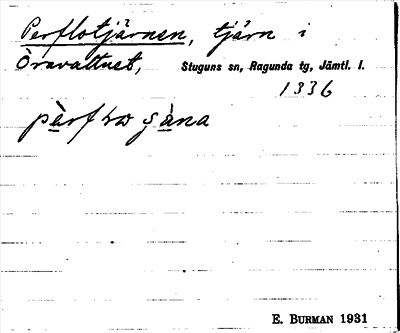 Perflotjärnen, tjärn i
Öravattnet, Stuguns sn, Ragunda tg, Jämtl. l.
1336
E. BURMAN 1931